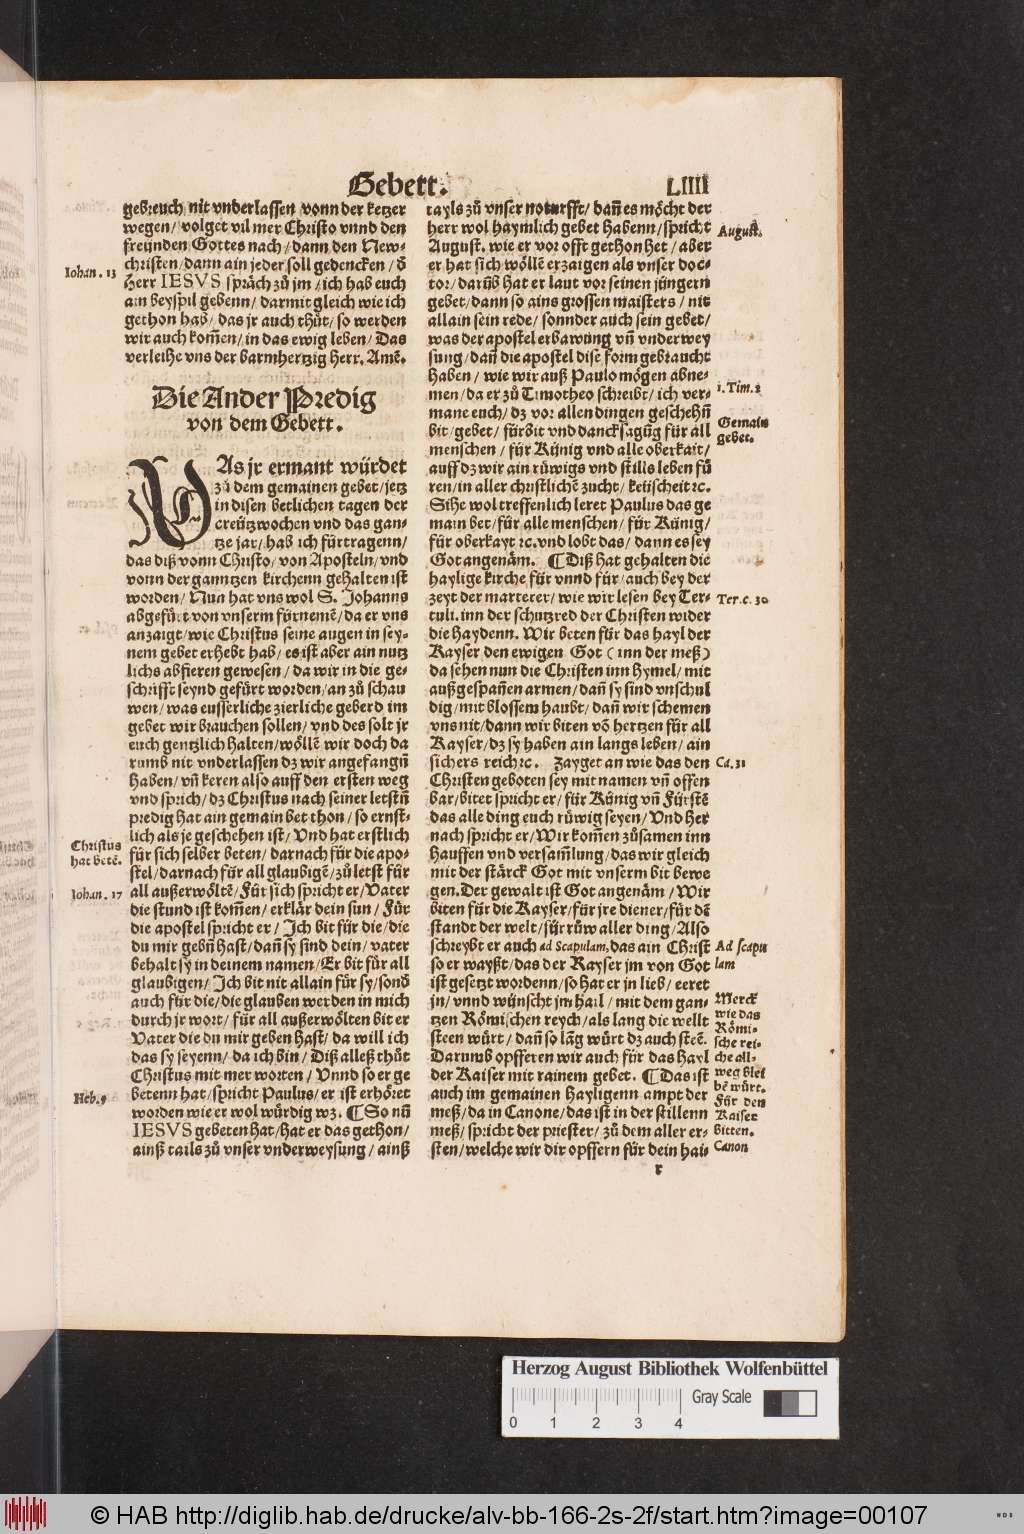 Gebett.
LIIII
gebreuch nit vnderlassen vonn der ketzer
wegen / volget vil mer Christo vnnd den
freünden Gottes nach / dann den New-
christen / dann ain jeder soll gedencken / ð
Iohan. 13
Herr IESVS spräch zů jm / ich hab euch
ain beyspil gebenn / darmit gleich wie ich
gethon hab / das jr auch thůt / so werden
wir auch kom̃en / in das ewig leben / Das
verleihe vns der barmhertzig Herr. Amẽ.
Die Ander Predig
von dem Gebett.
WAs jr ermant würdet
zů dem gemainen gebet / jetz
in disen betlichen tagen der
creützwochen vnd das gan-
tze jar / hab ich fürtragenn /
das diß vonn Christo / von Aposteln / vnd
vonn der ganntzen kirchenn gehalten ist
worden / Nun hat vns wol S. Johanns
abgefürt von vnserm fürnemẽ / da er vns
anzaigt / wie Christus seine augen in sey-
nem gebet erhebt hab / es ist aber ain nutz
lichs abfieren gewesen / da wir in die ge-
schrifft seynd gefürt worden / an zů schau
wen / was eusserliche zierliche geberd im
gebet wir brauchen sollen / vnd des solt jr
euch gentzlich halten / wöllẽ wir doch da
rumb nit vnderlassen dz wir angefangñ
haben / vñ keren also auff den ersten weg
vnd sprich / dz Christus nach seiner letstñ
predig hat ain gemain bet thon / so ernst-
lich als je geschehen ist / Vnd hat erstlich
Christus
hat betẽ.
für sich selber beten / darnach für die apo-
stel / darnach für all glaubigẽ / zů letst für
Iohan. 17
all außerwöltẽ / Für sich spricht er / Vater
die stund ist kom̃en / erklär dein sun / Für
die apostel spricht er / Ich bit für die / die
du mir gebñ hast / dañ sy sind dein / vater
behalt sy in deinem namen / Er bit für all
glaubigen / Ich bit nit allain für sy / sonð
auch für die / die glauben werden in mich
durch jr wort / für all außerwölten bit er
Vater die du mir geben hast / da will ich
das sy seyenn / da ich bin / Diß alleß thůt
Christus mit mer worten / Vnnd so er ge
Heb. 9
betenn hat / spricht Paulus / er ist erhöret
worden wie er wol würdig wz. ¶ So nũ
IESVS gebeten hat / hat er das gethon /
ainß tails zů vnser vnderweysung / ainß
tayls zů vnser noturfft / dañ es möcht der
herr wol haymlich gebet habenn / spricht
August.
August. wie er vor offt gethon het / aber
er hat sich wöllẽ erzaigen als vnser doc-
tor / darũb hat er laut vor seinen jüngern
gebet / dann so ains grossen maisters / nit
allain sein rede / sonnder auch sein gebet /
was der apostel erbawung vñ vnderwey
sung / dañ die apostel dise form gebraucht
haben / wie wir auß Paulo mögen abne-
1. Tim. 2
men / da er zů Timotheo schreibt / ich ver-
mane euch / dz vor allen dingen geschehñ
Gemain
gebet.
bit / gebet / fürbit vnd dancksagũg für all
menschen / für Künig vnd alle oberkait /
auff dz wir ain růwigs vnd stills leben fü
ren / in aller christlichẽ zucht / keüscheit ⁊c.
Sihe wol treffenlich leret Paulus das ge
main bet / für alle menschen / für Künig /
für oberkayt ⁊c. vnd lobt das / dann es sey
Got angenäm. ¶ Diß hat gehalten die
haylige kirche für vnnd für / auch bey der
zeyt der marterer / wie wir lesen bey Ter-
Ter. c. 30
tuli. inn der schutzred der Christen wider
die Haydenn. Wir beten für das hayl der
Kayser den ewigen Got ( inn der meß )
da sehen nun die Christen inn Hymel / mit
außgespañen armen / dañ sy sind vnschul
dig / mit blossem haubt / dañ wir schemen
vns nit / dann wir biten võ hertzen für all
Kayser / dz sy haben ain langs leben / ain
Ca. 31
sichers reich ⁊c. Zayget an wie das den
Christen geboten sey mit namen vñ offen
bar / bitet spricht er / für Künig vñ Fürstẽ
das alle ding euch růwig seyen / Vnd her
nach spricht er / Wir kom̃en zůsamen inn
hauffen vnd versam̃lung / das wir gleich
mit der stärck Got mit vnserm bit bewe
gen. Der gewalt ist Got angenäm / Wir
biten für die Kayser / für jre diener / für dẽ
standt der welt / für růw aller ding / Also
Ad scapu
lam
schreybt er auch ad Scapulam, das ain Christ
so er wayßt / das der Kayser jm von Got
ist gesetzt wordenn / so hat er jn lieb / eeret
Merck
wie das
Römi-
sche rei-
che all-
weg blei
bẽ würt.
jn / vnnd wünscht jm hail / mit dem gan-
tzen Römischen reych / als lang die wellt
steen würt / dañ so lãg würt dz auch steẽ.
Darumb opfferen wir auch für das hayl
der Kaiser mit rainem gebet. ¶ Das ist
Für den
Kaiser
bitten.
auch im gemainen Hayligenn ampt der
meß / da in Canone / das ist in der stillenn
meß / spricht der priester / zů dem aller er-
Canon
sten / welche wir dir opffern für dein hai-
r
Herzog August Bibliothek Wolfenbüttel
Gray Scale
0 1 2 3 4
© HAB http://diglib.hab.de/drucke/alv-bb-166-2s-2f/start.htm?image=00107